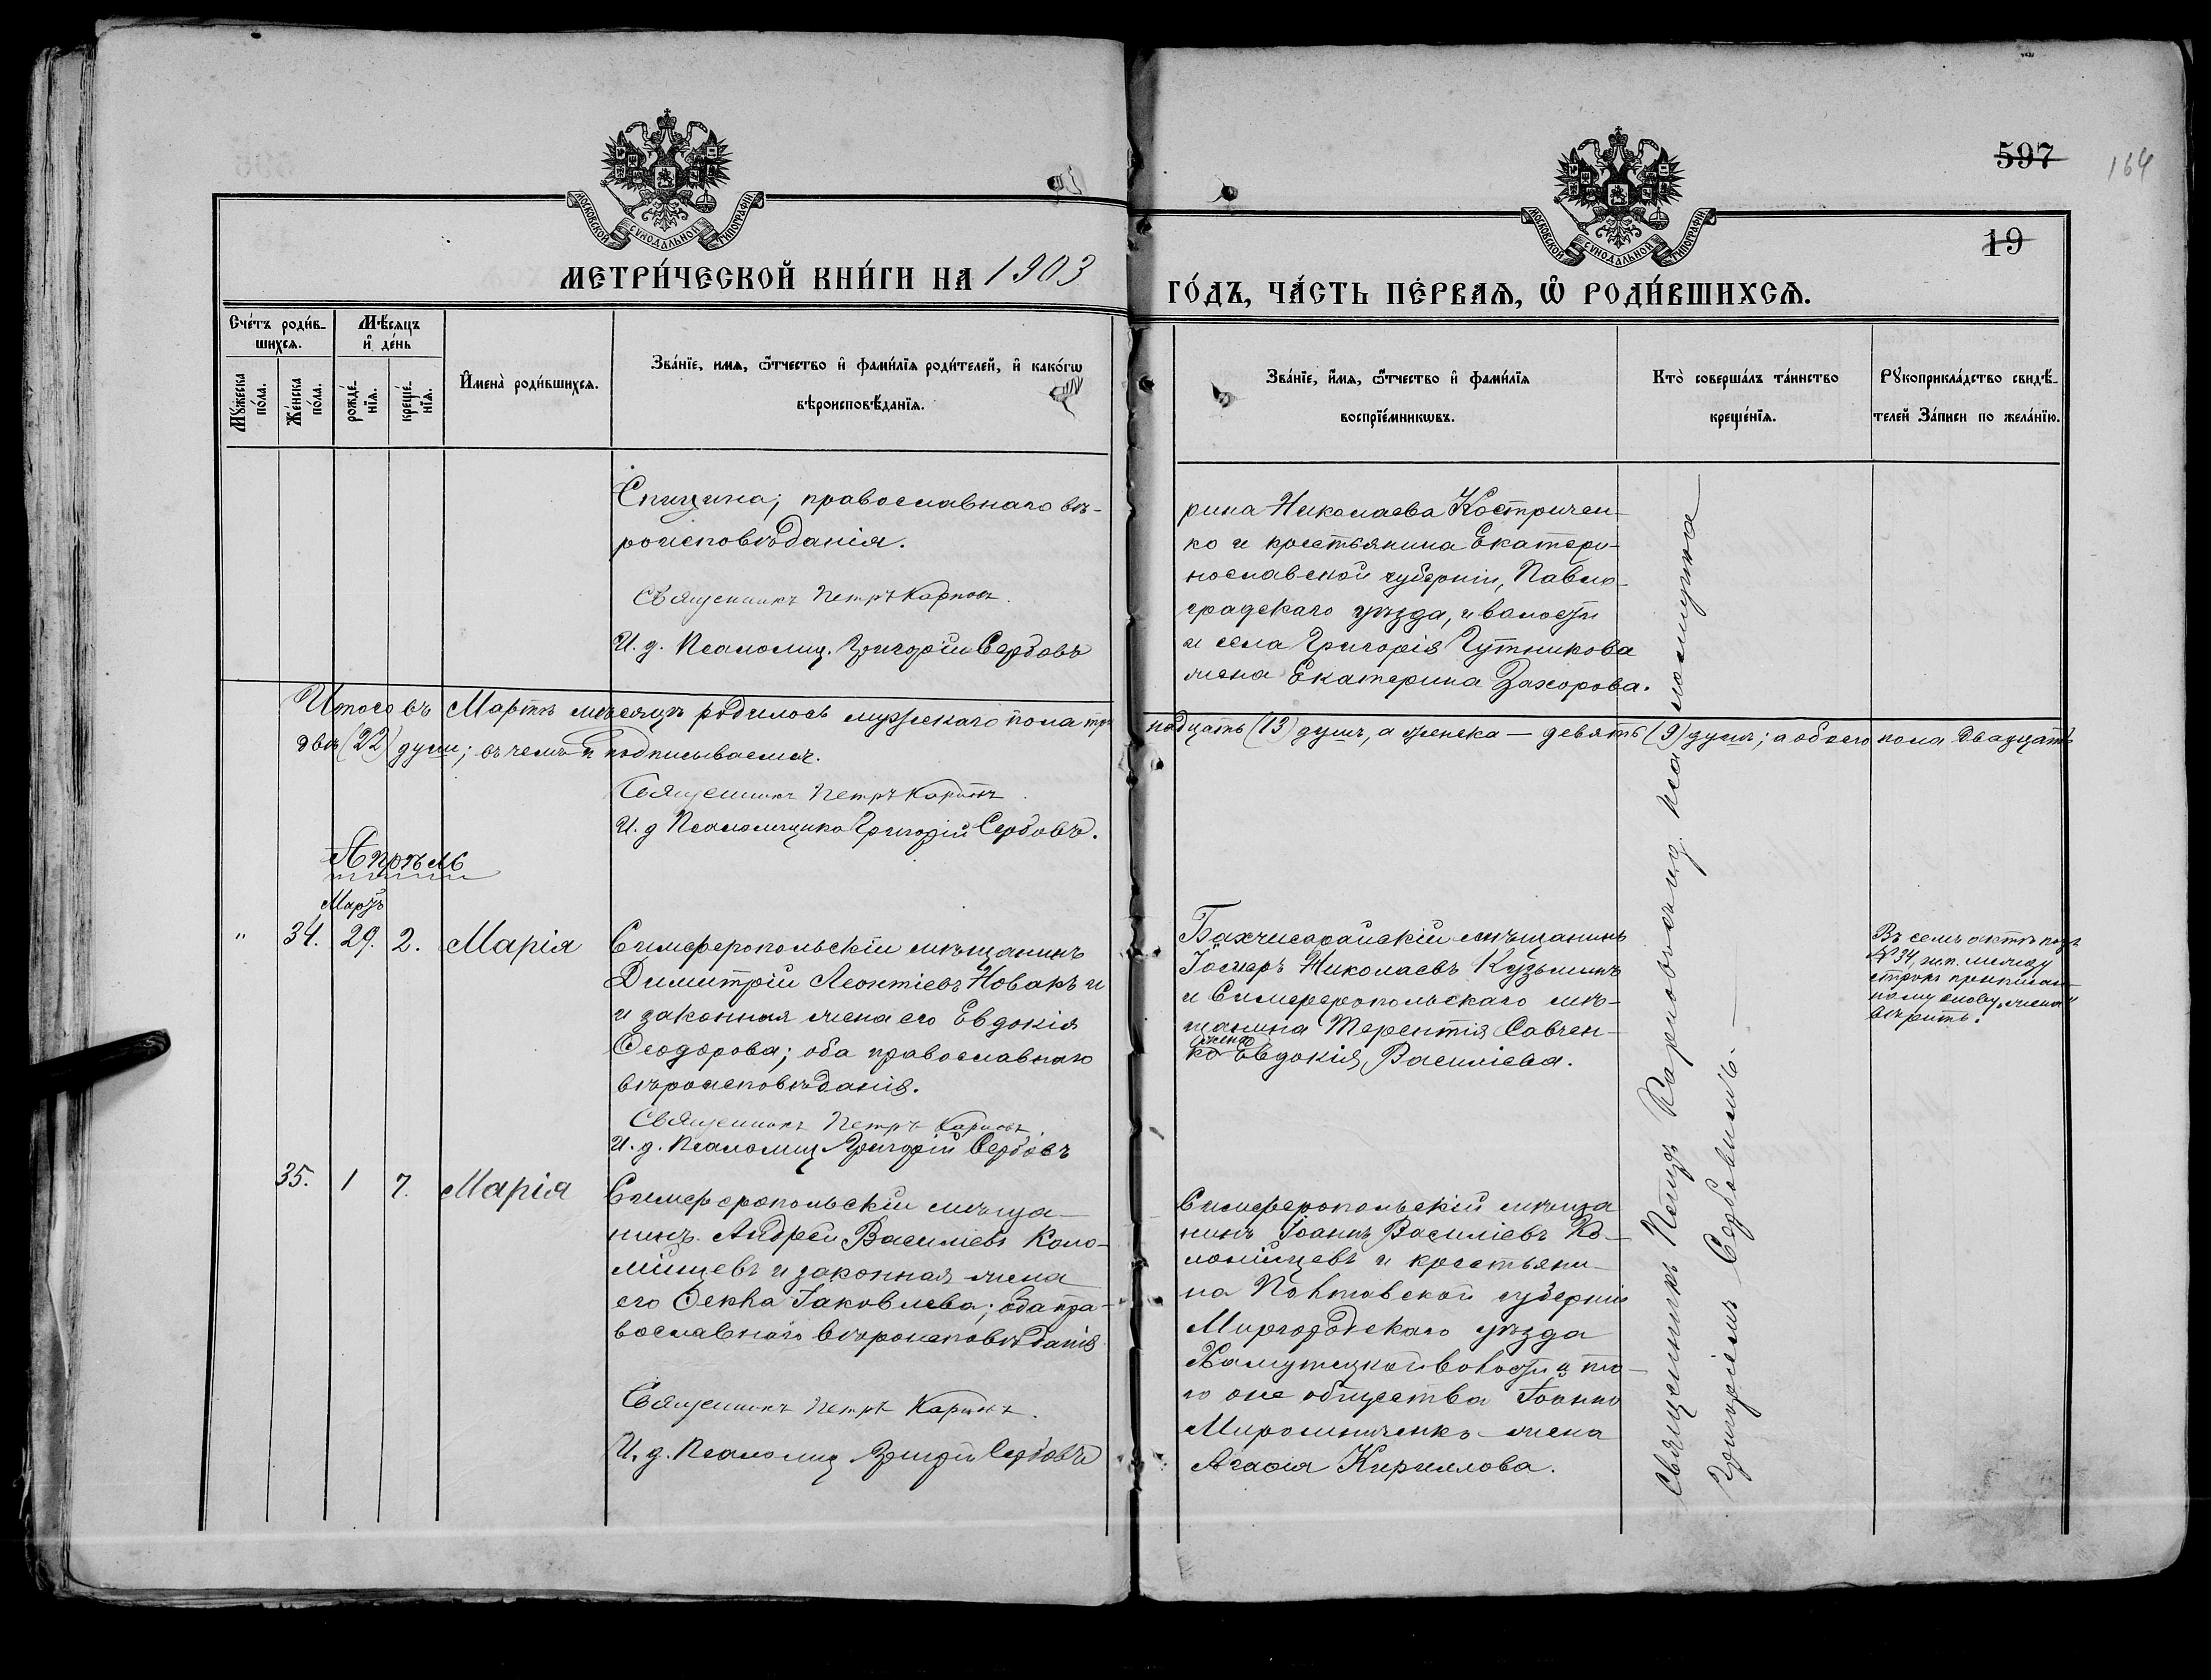 597
164
19
МОСКОВСКОЙ СУНОДАЛЬНОЙ ТИПОГРАФІИ
МОСКОВСКОЙ СУНОДАЛЬНОЙ ТИПОГРАФІИ
МЕТРИ́ЧЕСКОЙ КНИ́ГИ НА 1903
ГО́ДЪ, ЧА́СТЬ ПЕ́РВАѦ, Ѽ РОДИ́ВШИХСѦ.
Сче́тъ роди́в-
шихсѧ.
Мѣ́сѧцъ
и҆ де́нь
Мꙋ́жеска
по́ла.
Же́нска
по́ла.
рожде́-
нїѧ.
креще́-
нїѧ.
И҆мена̀ роди́вшихсѧ.
Зва́нїе, имѧ, ѻ҆́тчество и҆ фами́лїѧ роди́телей, и҆ како́гѡ
вѣроисповѣ́данїѧ.
Зва́нїе, и҆́мѧ, ѻ҆́тчество и҆ фами́лїѧ
воспрїе́мникѡвъ.
Кто̀ соверша́лъ та́инство
креще́нїѧ.
Рꙋкоприкла́дство свидѣ́-
телей За́писи по жела́нїю.
Спицина; православнаго вѣ-
роисповѣданія.
Священникъ Петръ Карповъ.
И. д. Псаломщ. Григорій Сербовъ
рина Николаева Костричен-
ко и крестьянина Екатери-
нославской губерніи, Павло-
градскаго уѣзда, и волости
и села Григорія Гутникова
жена Екатерина Захорова.
Итого въ Мартѣ мѣсяцѣ родилось мужескаго пола три
надцать (13) душъ, а женска — девять (9) душъ; а обоего пола двадцать
двѣ (22) души; въ чемъ и подписываемся.
Священникъ Петръ Карповъ.
И. д Псаломщика Григорій Сербовъ.
Апрѣль
Мартъ
" 34. 29. 2. Марія
Симферопольскій мѣщанинъ
Димитрій Леонтіевъ Новакъ и
и законная жена его Евдокія
Ѳеодорова; оба православнаго
вѣроисповѣданія.
Священникъ Петръ Карповъ.
И. д. Псаломщ Григорій Сербовъ
Бахчисарайскій мѣщанинъ
Николаевъ Кузьминъ
и Симферопольскаго мѣ-
щанина Терентія Савчен-
жена
ко Евдокія Василіева.
Въ семъ актѣ подъ
№ 34, м.п. между
строкъ приписан-
ному слову „жена"
вѣрить.
35. 1 7. Марія
Симферопольскій мѣща-
нинъ Андрей Василіевъ Коло-
мійцевъ и законная жена
его Ѳекла Іаковлева; оба пра-
вославнаго вѣроисповѣданія
Священникъ Петръ Карповъ.
И. д. Псаломщ Григорій Сербовъ
Симферопольскій мѣща
нинъ Іоаннъ Василіевъ Ко-
ломійцевъ и крестьяни-
на Полтавской губерніи
Миргородскаго уѣзда
Хомутецкой волости и то-
го же общества Іоанна
Мирошниченко жена
Агафія Кириллова.
Священникъ Петръ Карповъ съ и. д. псаломщика
Григоріемъ Сербовымъ.—